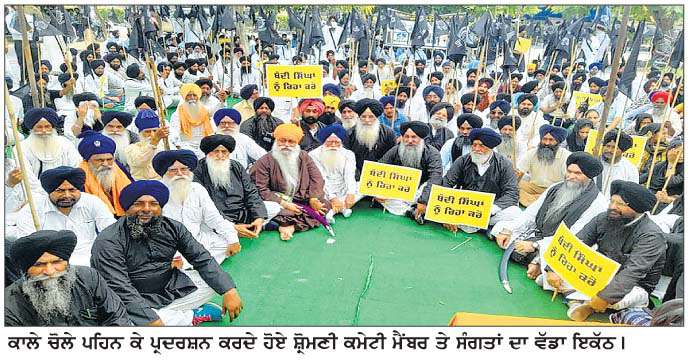 ਬੰਦੀ ਸਿੰਘਾਂ
ਨੂੰ ਰਿਹਾ ਕਰੋ
ਬੰਦੀ ਸਿੰਘਾਂ
ਨੂੰ ਰਿਹਾ ਕਰੋ
ਬੰਦੀ ਸਿੰਘਾਂ
ਨੂੰ ਰਿਹਾ ਕਰੋ
ਬੰਦੀ ਸਿੰਘਾਂ
ਨੂੰ ਰਿਹਾ ਕਰੋ
ਕਾਲੇ ਚੋਲੇ ਪਹਿਨ ਕੇ ਪ੍ਰਦਰਸ਼ਨ ਕਰਦੇ ਹੋਏ ਸ਼੍ਰੋਮਣੀ ਕਮੇਟੀ ਮੈਂਬਰ ਤੇ ਸੰਗਤਾਂ ਦਾ ਵੱਡਾ ਇਕੱਠ।